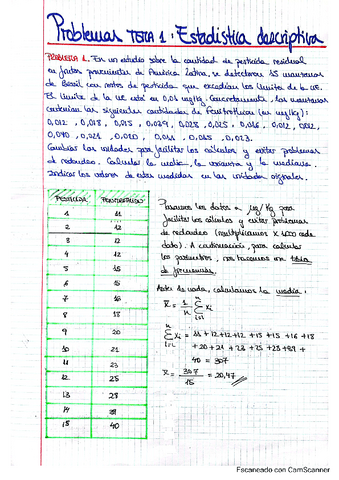 Problemas TEMA 1: Estadística descriptiva
PROBLEMA 1. En un estudio sobre la cantidad de pesticida residual
en frutas provenientes de América Latina, se detectaron 15 manzanas
de Brasil con restos de pesticida que excedían los límites de la UE.
El límite de la UE está en 0,01 mg/kg. Concretamente, las manzanas
contenían las siguientes cantidades de Fenitrothion (en mg/kg):
0,012, 0,018, 0,015, 0,039, 0,028, 0,025, 0,016, 0,012, 0,012,
0,040, 0,021, 0,020, 0,011, 0,015, 0,023.
Cambiar las unidades para facilitar los cálculos y evitar problemas
de redondeo. Calcular la media, la varianza y la mediana.
Indicar los valores de estas medidas en las unidades originales.
POSICIÓN
1 11
2 12
3 12
4 12
5 15
6 15
7 16
8 18
9 20
10 21
11 23
12 25
13 28
14 39
15 40
Pasamos los datos a µg/kg para
facilitar los cálculos y evitar problemas
de redondeo (multiplicamos x 1000 cada
dato). A continuación, para calcular
los parámetros, nos hacemos una tabla
de frecuencias.
Antes de nada, calculamos la media:
x̄ = 1/n Σ xi
Σ xi = 11 + 12+12+12 + 15 + 15 + 16 + 18
+ 20 + 21 + 23 + 25 + 28 + 39 +
40 = 307
x̄ = 307/15 = 20,47
Escaneado con CamScanner